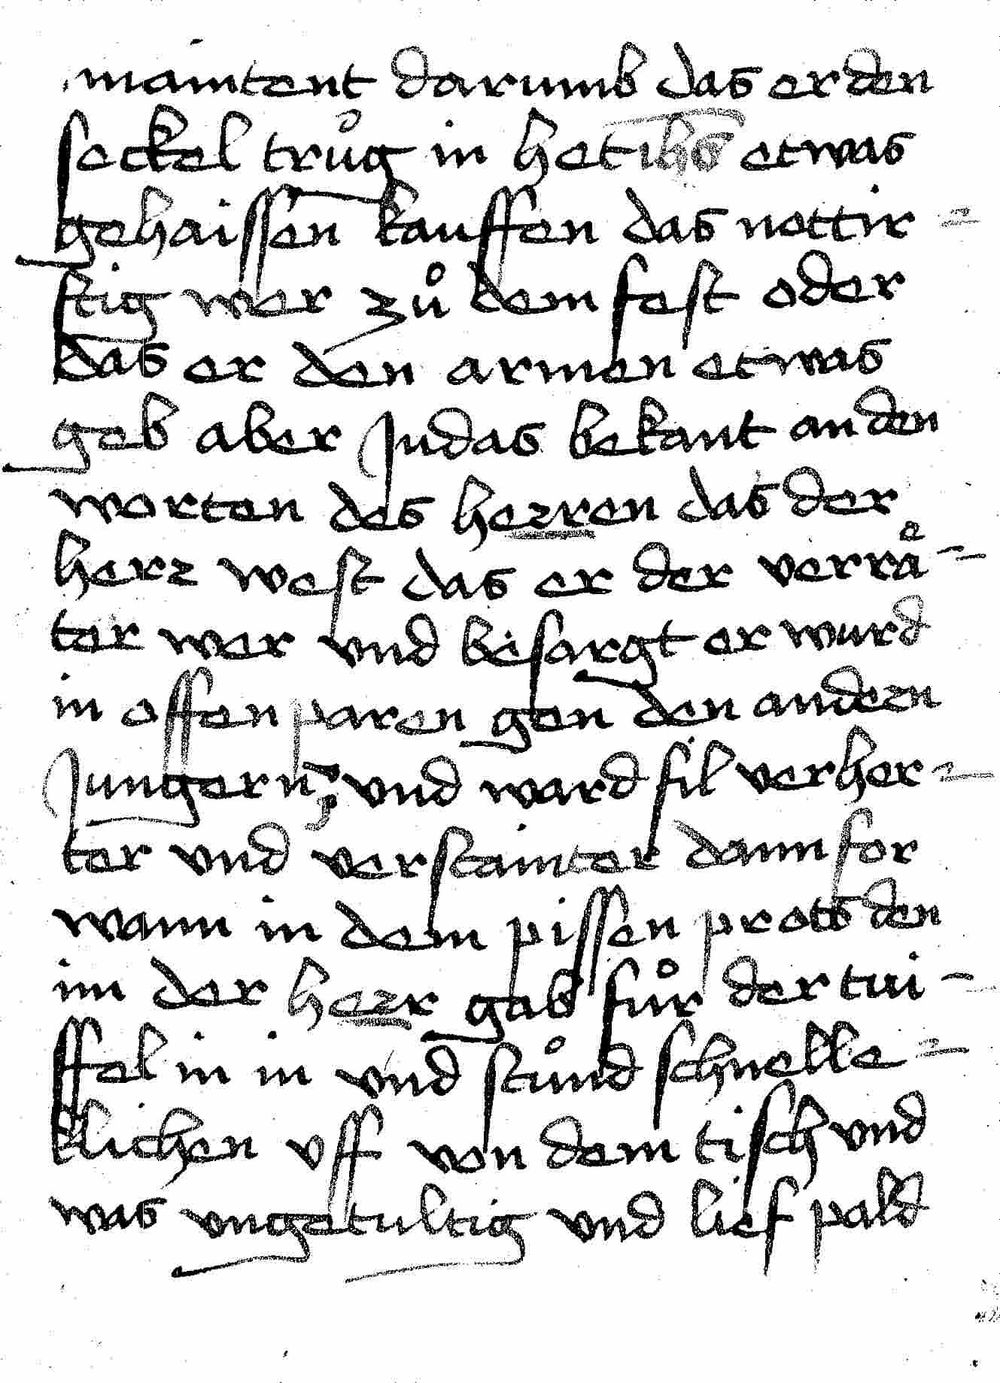 maintent darumb das er den
seckel trůg in het ihs etwas
gehaissen kauffen das nottir=
ftig wer zů dem fest oder
das er den armen etwas
geb aber Judas bekant an den
worten des herren das der
herr west das er der verraͤ=
ter wer vnd besargt er wurd
in offen paren gen den andern
Jungern, vnd ward fil verher=
ter vnd verstainter dann for
wann in dem pissen protts den
im der herr gab fůr der tui-
ffel in in vnd stůnd schnelle=
klichen vff von dem tisch vnd
was vngetultig vnd lief pald